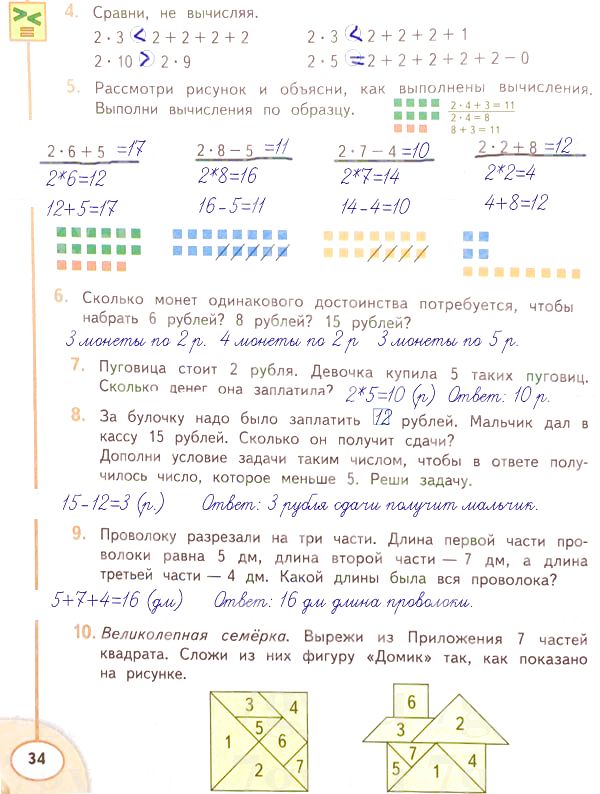 4. Сравни, не вычисляя.
2 · 3 < 2 + 2 + 2 + 2 2 · 3 < 2 + 2 + 2 + 1
2 · 10 > 2 · 9 2 · 5 = 2 + 2 + 2 + 2 + 2 − 0
5. Рассмотри рисунок и объясни, как выполнены вычисления.
Выполни вычисления по образцу.
2 · 4 + 3 = 11
2 · 4 = 8
8 + 3 = 11
2 · 6 + 5 =17 2 · 8 − 5 =11 2 · 7 − 4 =10 2 · 2 + 8 =12
2*6=12 2*8=16 2*7=14 2*2=4
12+5=17 16-5=11 14-4=10 4+8=12
6. Сколько монет одинакового достоинства потребуется, чтобы
набрать 6 рублей? 8 рублей? 15 рублей?
3 монеты по 2 р. 4 монеты по 2 р 3 монеты по 5 р.
7. Пуговица стоит 2 рубля. Девочка купила 5 таких пуговиц.
Сколько денег она заплатила? 2*5=10 (р) Ответ: 10 р.
8. За булочку надо было заплатить 12 рублей. Мальчик дал в
кассу 15 рублей. Сколько он получит сдачи?
Дополни условие задачи таким числом, чтобы в ответе полу-
чилось число, которое меньше 5. Реши задачу.
15-12=3 (р.) Ответ: 3 рубля сдачи получит мальчик.
9. Проволоку разрезали на три части. Длина первой части про-
волоки равна 5 дм, длина второй части — 7 дм, а длина
третьей части — 4 дм. Какой длины была вся проволока?
5+7+4=16 (дм) Ответ: 16 дм длина проволоки.
10. Великолепная семёрка. Вырежи из Приложения 7 частей
квадрата. Сложи из них фигуру «Домик» так, как показано
на рисунке.
3 4 5 1 6 2 7
6 3 2 7 5 1 4
34